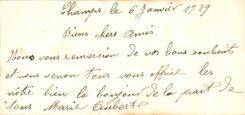 Champs le 6 Janvier 1929
Biens chers Amis
Nous vous remercion de vos bons souhaits
et nous venon tous vous offrir les
nôtre bien le bonjour de la part de
tous Marie Aubert